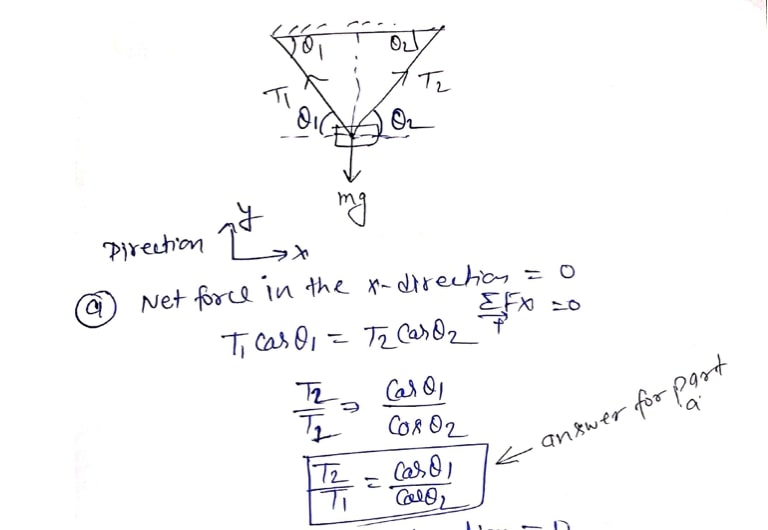 θ1 θ2
T1 T2
θ1 θ2
mg
Direction y x
(a) Net force in the x-direction = 0
ΣFx = 0
T1 cosθ1 = T2 cosθ2
T2/T1 ⇒ cosθ1/cosθ2
T2/T1 = cosθ1/cosθ2
answer for part a.